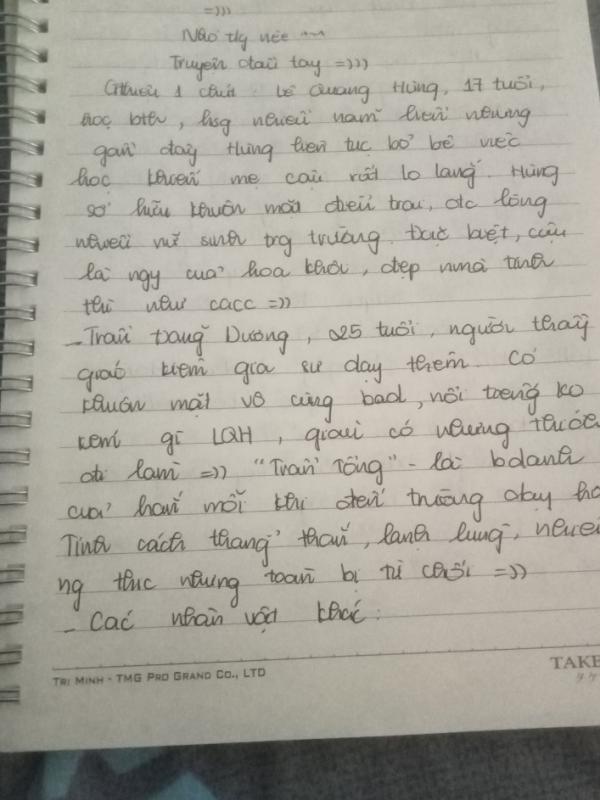 =)))
Nào thy vée ~~
Truyện đầu tay =)))
Nhiều 1 chút : Lê Quang Hùng, 17 tuổi,
học bth, hsg nhiều năm liền nhưng
gần đây Hùng liên tục bỏ bê việc
học khiến mẹ cậu rất lo lắng. Hùng
sở hữu khuôn mặt điển trai, đc lòng
nhiều nữ sinh trg trường. Đặc biệt, cậu
là ngy của hoa khôi, đẹp nmà tính
thì như cacc =))
- Trần Đăng Dương, 25 tuổi, người thầy
giáo kiêm gia sư dạy thêm. Có
khuôn mặt vô cùng bad, nổi tiếng ko
kém gì LQH, giàu có nhưng thích
đi làm =)) "Trần Tổng" - là bdanh
của hắn mỗi khi đến trường dạy họ
Tính cách thẳng thắn, lạnh lùng, nhiều
ng thíc nhưng toàn bị từ chối =))
- Các nhân vật khác :
TRI MINH - TMG PRO GRAND CO., LTD
TAKE